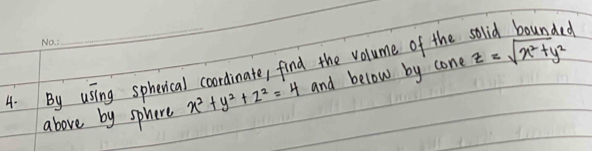 No.:
4. By using spherical coordinate, find the volume of the solid bounded
above by sphere x² + y² + z² = 4 and below by cone z = √x² + y²